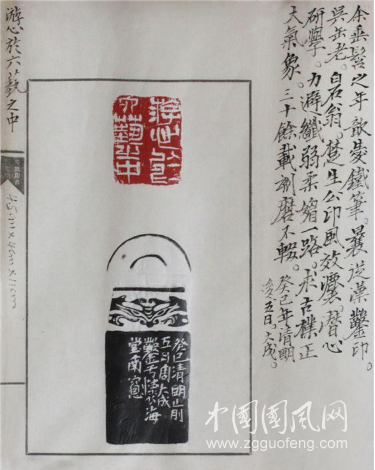 余垂髫之年歆愛鐵筆。曩從漢鑿印。
吳缶老、白石翁、楚生公印風效灋、督心
研學。力避纖弱柔媚一路。求古樸正
大氣象。三十餘載劘磨不輟。癸巳年清明
五日。大成。
游心於
六藝之中
癸巳清明前
五日周大成
鑿於海
堂南窗
游心於六藝之中
中國國风网
www.zgguofeng.com